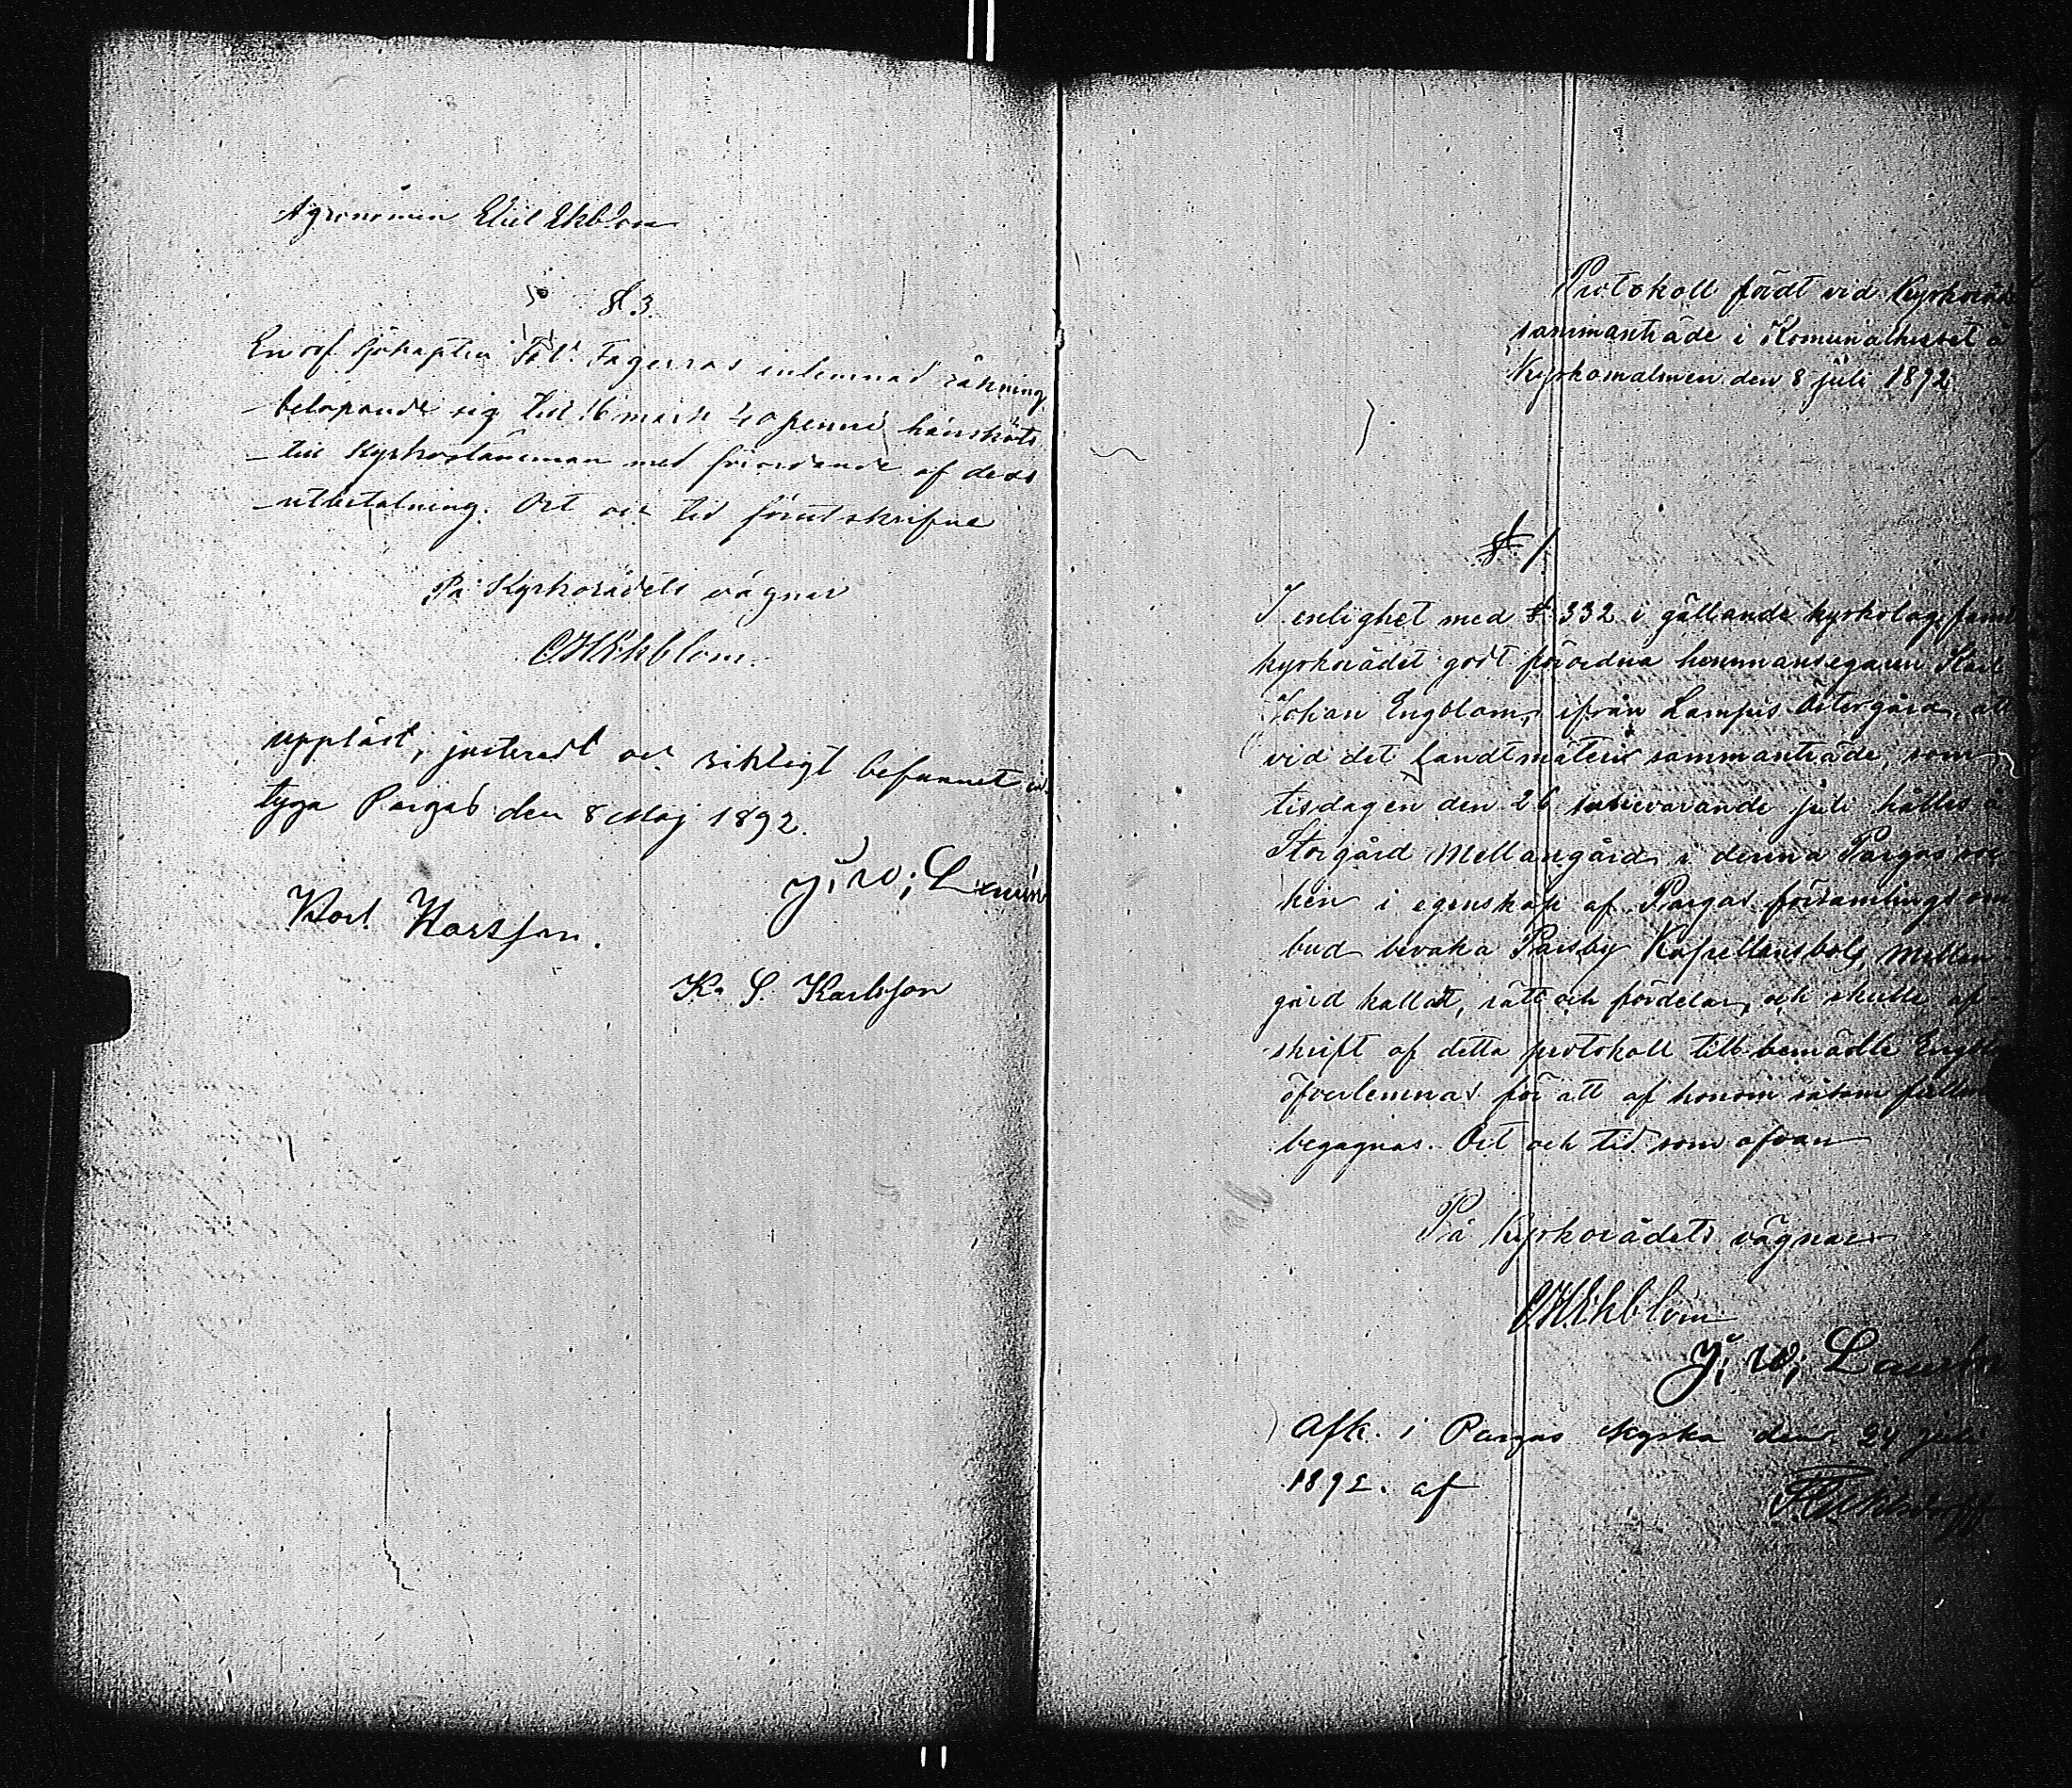 Agronomen Eliel Ekblom
§ 3.
En af Sjökapten Fagerros inlemnad räkning
belöpande sig till 16 mark 40 penni hänsköts
till Kyrkostämman med förordande af dess
utbetalning. Ort och tid förutskrifne
På Kyrkorådets vägnar
C H Ekblom.
uppläst, justeradt och riktigt befunnet
tyga Pargas den 8 Maj 1892.
J. W. Lemin
Karl Karlsson.
K. S. Karlsson
Protokoll fördt vid Kyrkoråds
sammanträde i Komunalhuset å
Kyrkomalmen den 8 juli 1892
§ 1.
I enlighet med § 332 i gällande kyrkolag fann
kyrkorådet godt förordna hemmansegaren Karl
Johan Engblom, ifrån Lampis Östergård, att
vid det Landtmäteri sammanträde, som
tisdagen den 26 innevarande juli hålles å
Storgård Mellangård i denna Pargas soc
ken i egenskap af Pargas församlings om
bud bevaka Parsby Kapellansbols, Mellan
gård kalladt, rätt och fördelar, och skulle af
skrift af detta protokoll till bemälde Engblom
öfverlemnas för att af honom såsom fullmakt
begagnas. Ort och tid som ofvan
På Kyrkorådets vägnar
C H Ekblom
J. W. Lemin
Afk. i Pargas kyrka den 24 juli
1892. af